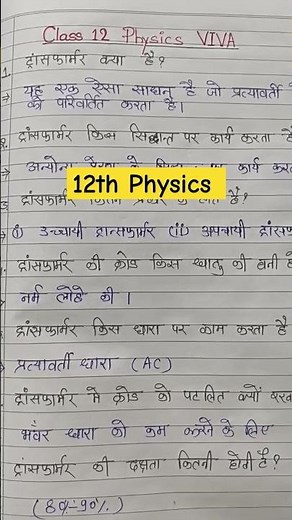 Class 12 Physics VIVA
1. ट्रांसफार्मर क्या है?
→ यह एक ऐसा साधन है जो प्रत्यावर्ती
को परिवर्तित करता है।
ट्रांसफार्मर किस सिद्धान्त पर कार्य करता है
→ अन्योन्य कार्य कर
12th Physics
3 ट्रांसफार्मर है?
→ (i) उच्चायी ट्रान्सफार्मर (ii) अपचायी ट्रांसफ
ट्रांसफार्मर की क्रोड किस धातु की बनी है
→ नर्म लोहे की।
ट्रांसफार्मर किस धारा पर काम करता है
→ प्रत्यावर्ती धारा (AC)
ट्रांसफार्मर में क्रोड को पटलित क्यों
भंवर धारा को कम करने के लिए
ट्रांसफार्मर की दक्षता कितनी होती है?
(80-90%)